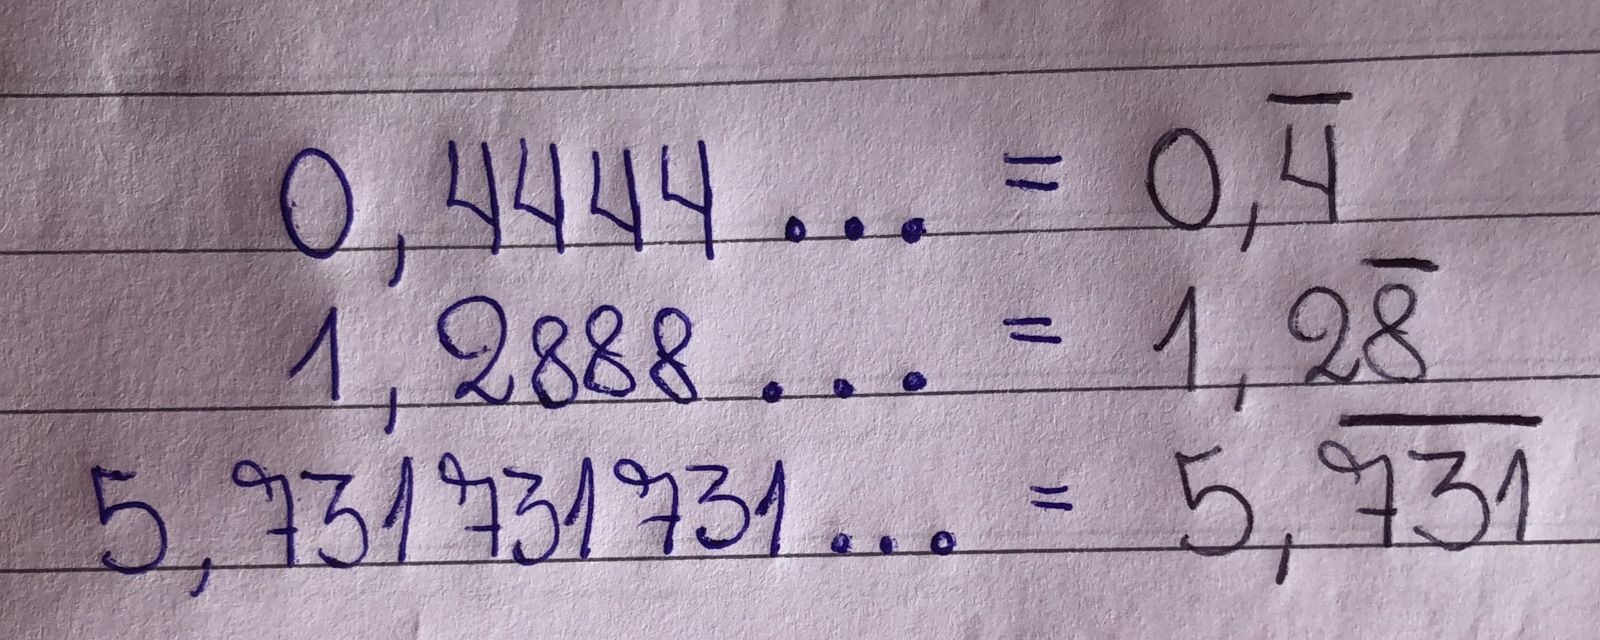 0,4444... = 0,4̅
1,2888... = 1,28̅
5,731731731... = 5,7̅3̅1̅